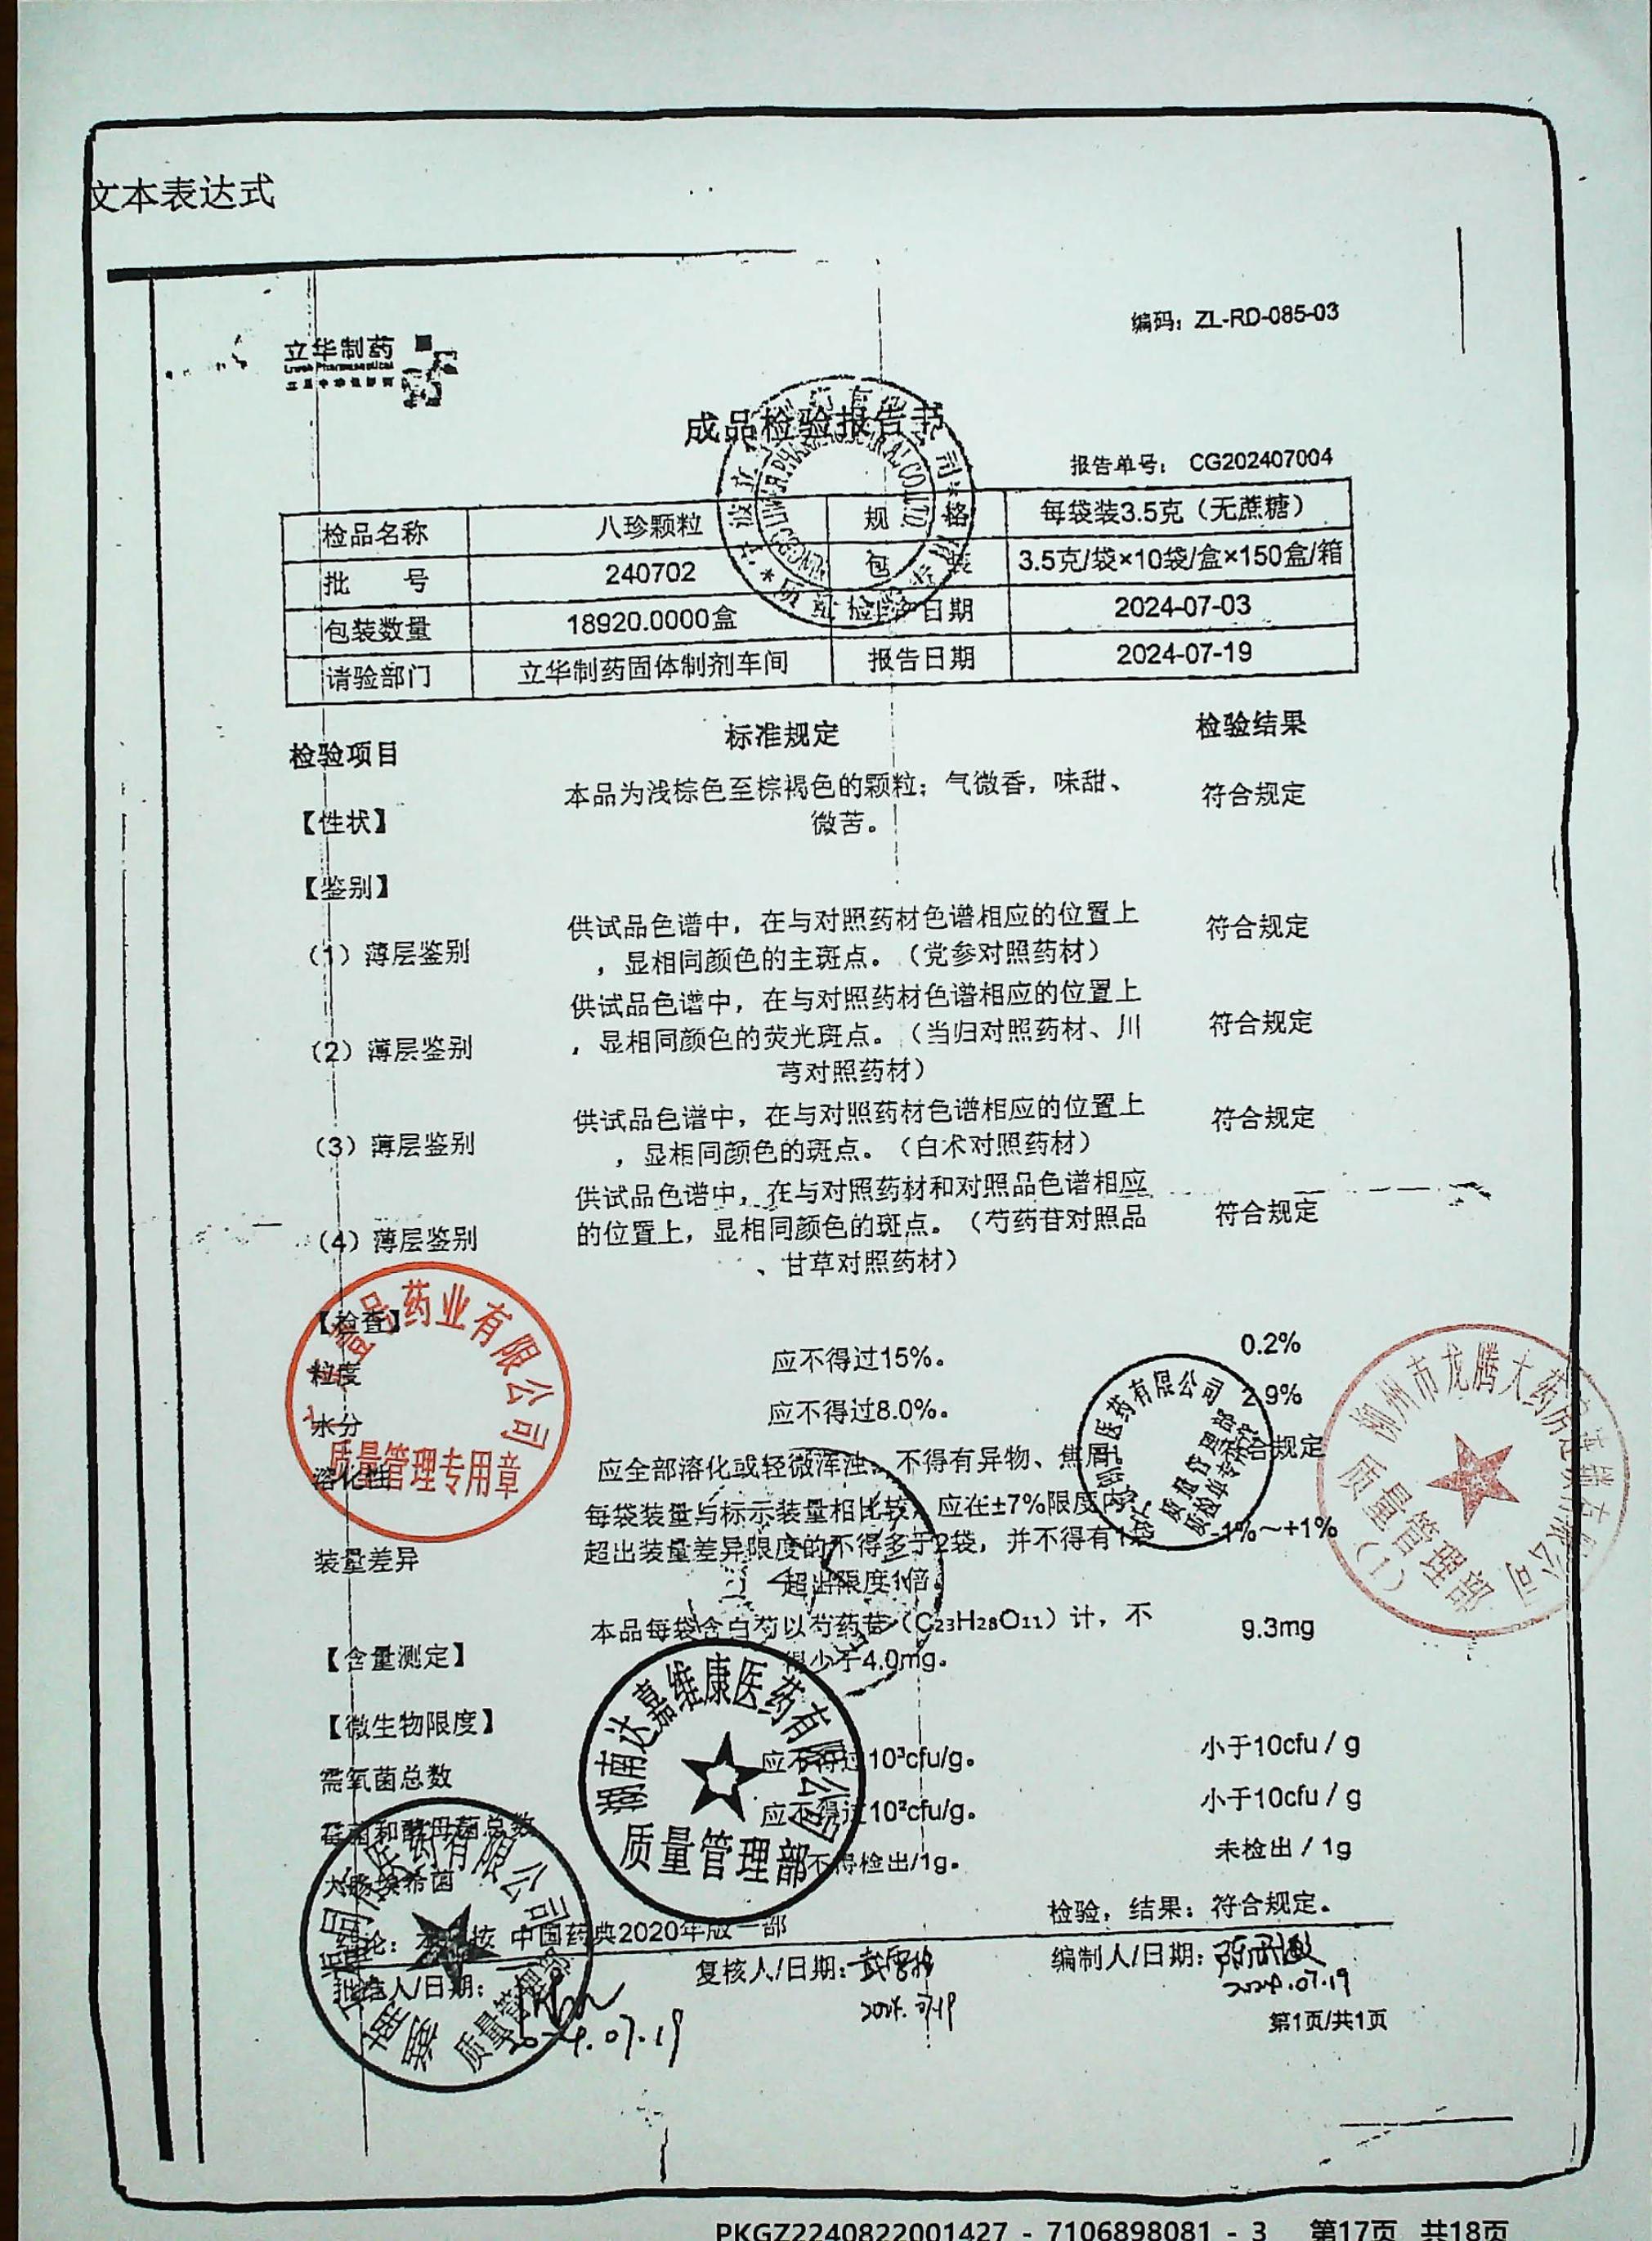 文本表达式
编码：ZL-RD-085-03
立华制药
成品检验报告书
报告单号： CG202407004
检品名称 八珍颗粒 规 格 每袋装3.5克（无蔗糖）
批 号 240702 包 装 3.5克/袋×10袋/盒×150盒/箱
包装数量 18920.0000盒 日期 2024-07-03
请验部门 立华制药固体制剂车间 报告日期 2024-07-19
检验项目 标准规定 检验结果
【性状】 本品为浅棕色至棕褐色的颗粒；气微香，味甜、 符合规定
微苦。
【鉴别】
（1）薄层鉴别 供试品色谱中，在与对照药材色谱相应的位置上 符合规定
，显相同颜色的主斑点。（党参对照药材）
（2）薄层鉴别 供试品色谱中，在与对照药材色谱相应的位置上 符合规定
，显相同颜色的荧光斑点。（当归对照药材、川
芎对照药材）
（3）薄层鉴别 供试品色谱中，在与对照药材色谱相应的位置上 符合规定
，显相同颜色的斑点。（白术对照药材）
（4）薄层鉴别 供试品色谱中，在与对照药材和对照品色谱相应 符合规定
的位置上，显相同颜色的斑点。（芍药苷对照品
、甘草对照药材）
【检查】
粒度 应不得过15%。 0.2%
水分 应不得过8.0%。 2.9%
溶化性 应全部溶化或轻微浑浊，不得有异物、焦屑 合规定
装量差异 每袋装量与标示装量相比较，应在±7%限度内 -1%～+1%
超出装量差异限度的不得多于2袋，并不得有1袋
超出限度1倍。
【含量测定】 本品每袋含白芍以芍药苷（C₂₃H₂₈O₁₁）计，不 9.3mg
得少于4.0mg。
【微生物限度】
需氧菌总数 应不得过10³cfu/g。 小于10cfu / g
霉菌和酵母菌总数 应不得过10²cfu/g。 小于10cfu / g
大肠埃希菌 不得检出/1g。 未检出 / 1g
结论： 本品按 中国药典2020年版一部 检验，结果：符合规定。
批准人/日期： 复核人/日期： 编制人/日期：
2024.07.19
2024.07.19
2024.07.19
第1页/共1页
药业有限公司
质量管理专用章
医药有限公司
质量管理部
质检单专用章
柳州市龙腾大药房连锁有限公司
质量管理部
（1）
湖南达嘉维康医药有限公司
质量管理部
医药有限公司
质量管理部
PKGZ2240822001427 - 7106898081 - 3 第17页 共18页